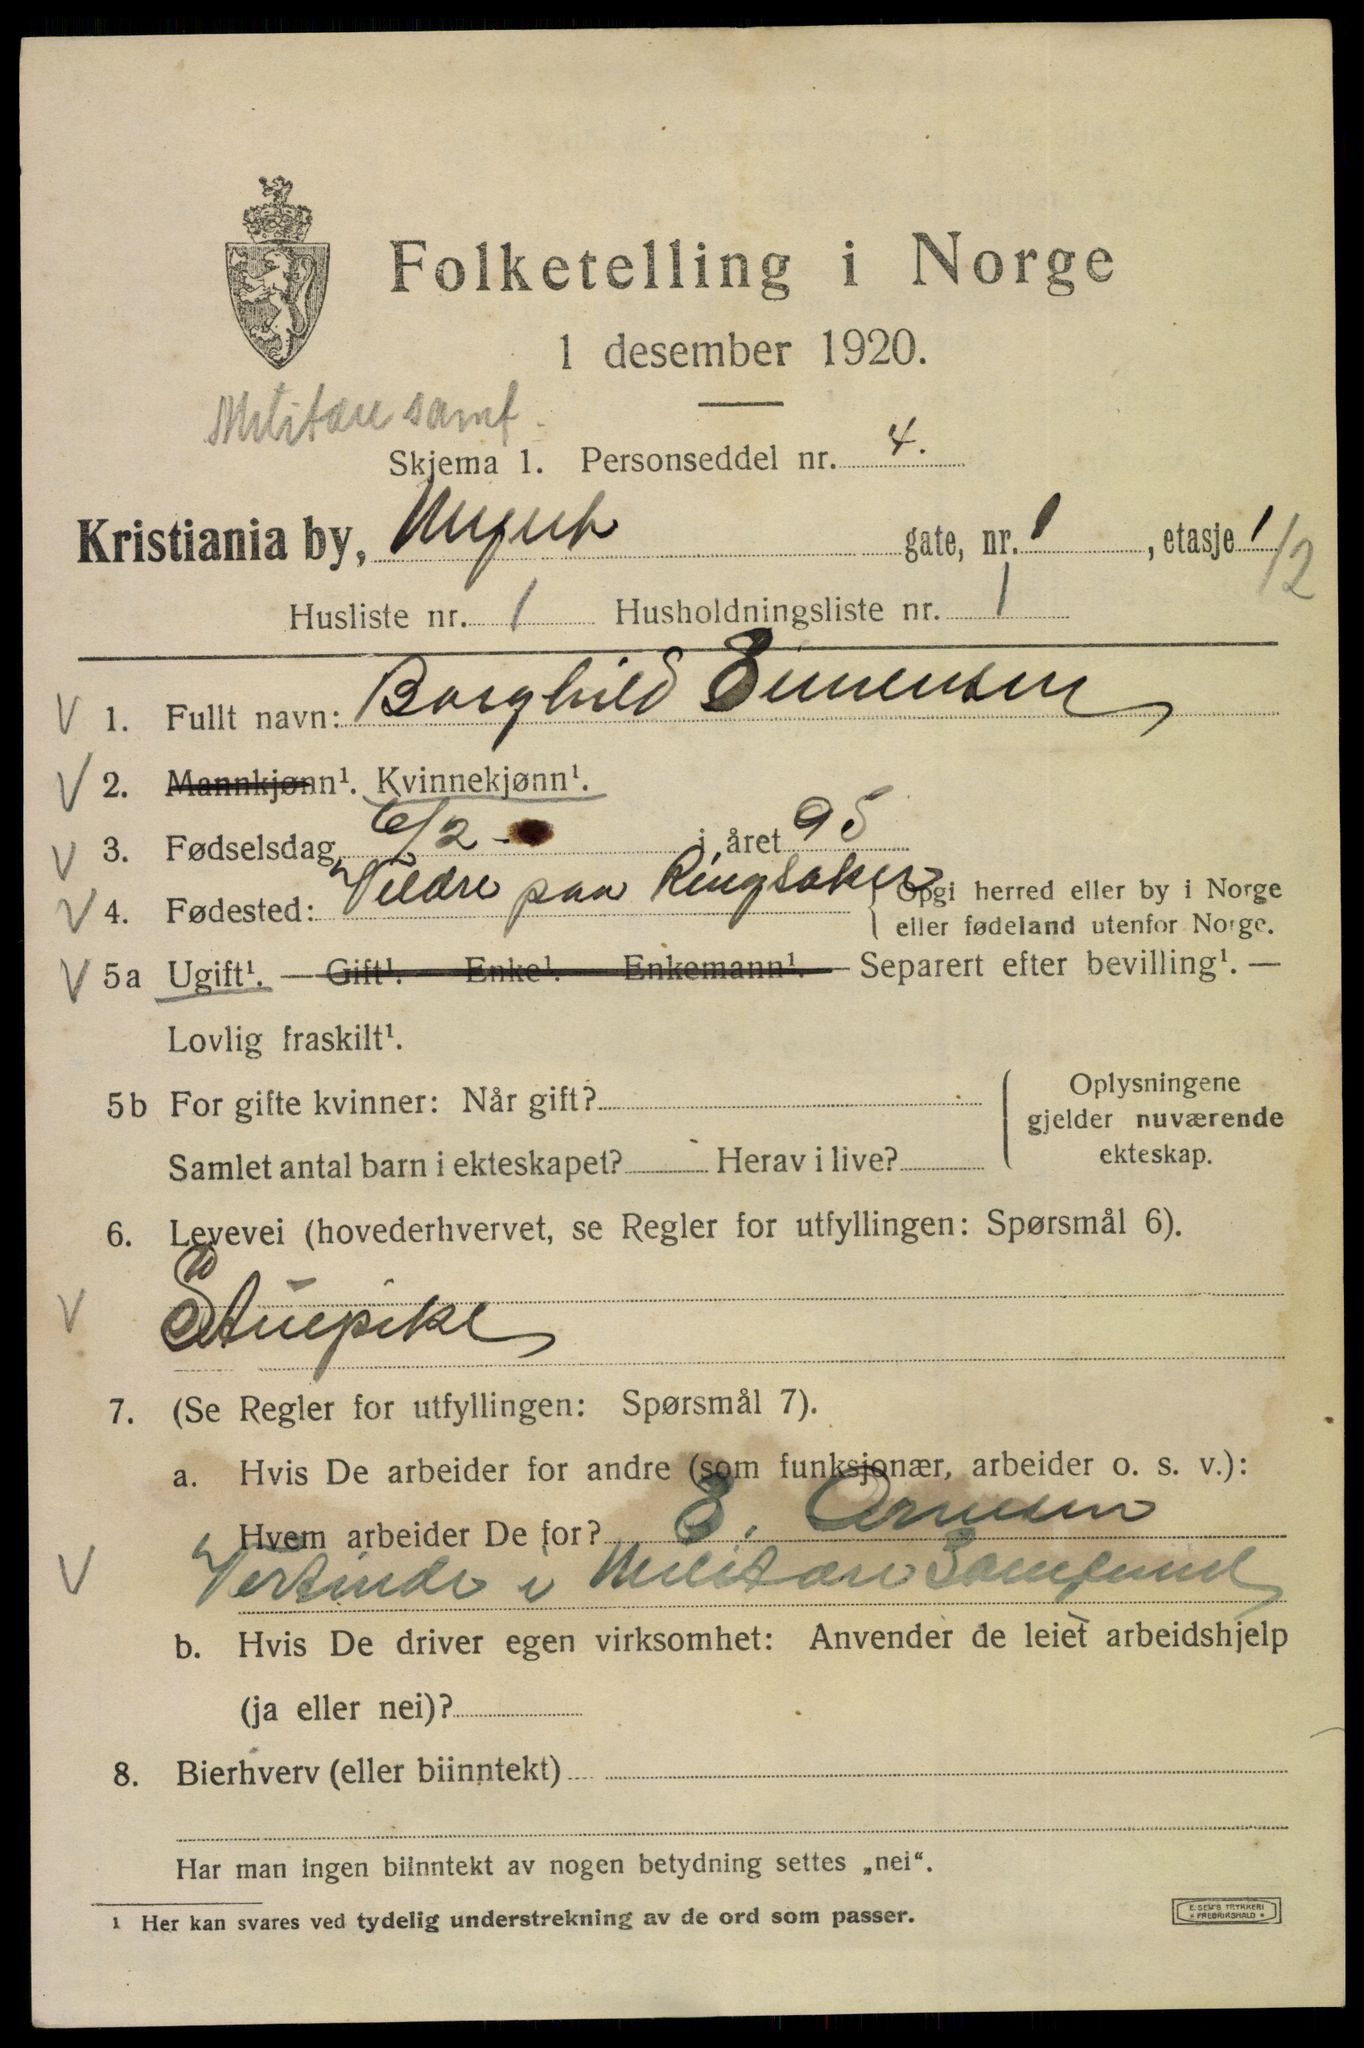 Folketelling i Norge
1 desember 1920.
Militære samf.
Skjema 1. Personseddel nr. 4.
Kristiania by, Myntgt gate, nr. 1, etasje 1/2
Husliste nr. 1 Husholdningsliste nr. 1
1. Fullt navn: Borghild Simensen
2. Mannkjønn¹. Kvinnekjønn¹.
3. Fødselsdag 6/2 - i året 95
4. Fødested: Veldre paa Ringsaker { Opgi herred eller by i Norge
eller fødeland utenfor Norge.
5a Ugift¹. — Gift¹. — Enke¹. — Enkemann¹. — Separert efter bevilling¹. —
Lovlig fraskilt¹.
5b For gifte kvinner: Når gift?
Samlet antal barn i ekteskapet? Herav i live?
Oplysningene
gjelder nuværende
ekteskap.
6. Levevei (hovederhvervet, se Regler for utfyllingen: Spørsmål 6).
Stuepike
7. (Se Regler for utfyllingen: Spørsmål 7).
a. Hvis De arbeider for andre (som funksjonær, arbeider o. s. v.):
Hvem arbeider De for? E. Arnesen
Vertinde i Militære Samfund
b. Hvis De driver egen virksomhet: Anvender de leiet arbeidshjelp
(ja eller nei)?
8. Bierhverv (eller biinntekt)
Har man ingen biinntekt av nogen betydning settes „nei“.
¹ Her kan svares ved tydelig understrekning av de ord som passer.
E. SEM'S TRYKKERI
* FREDRIKSHALD *